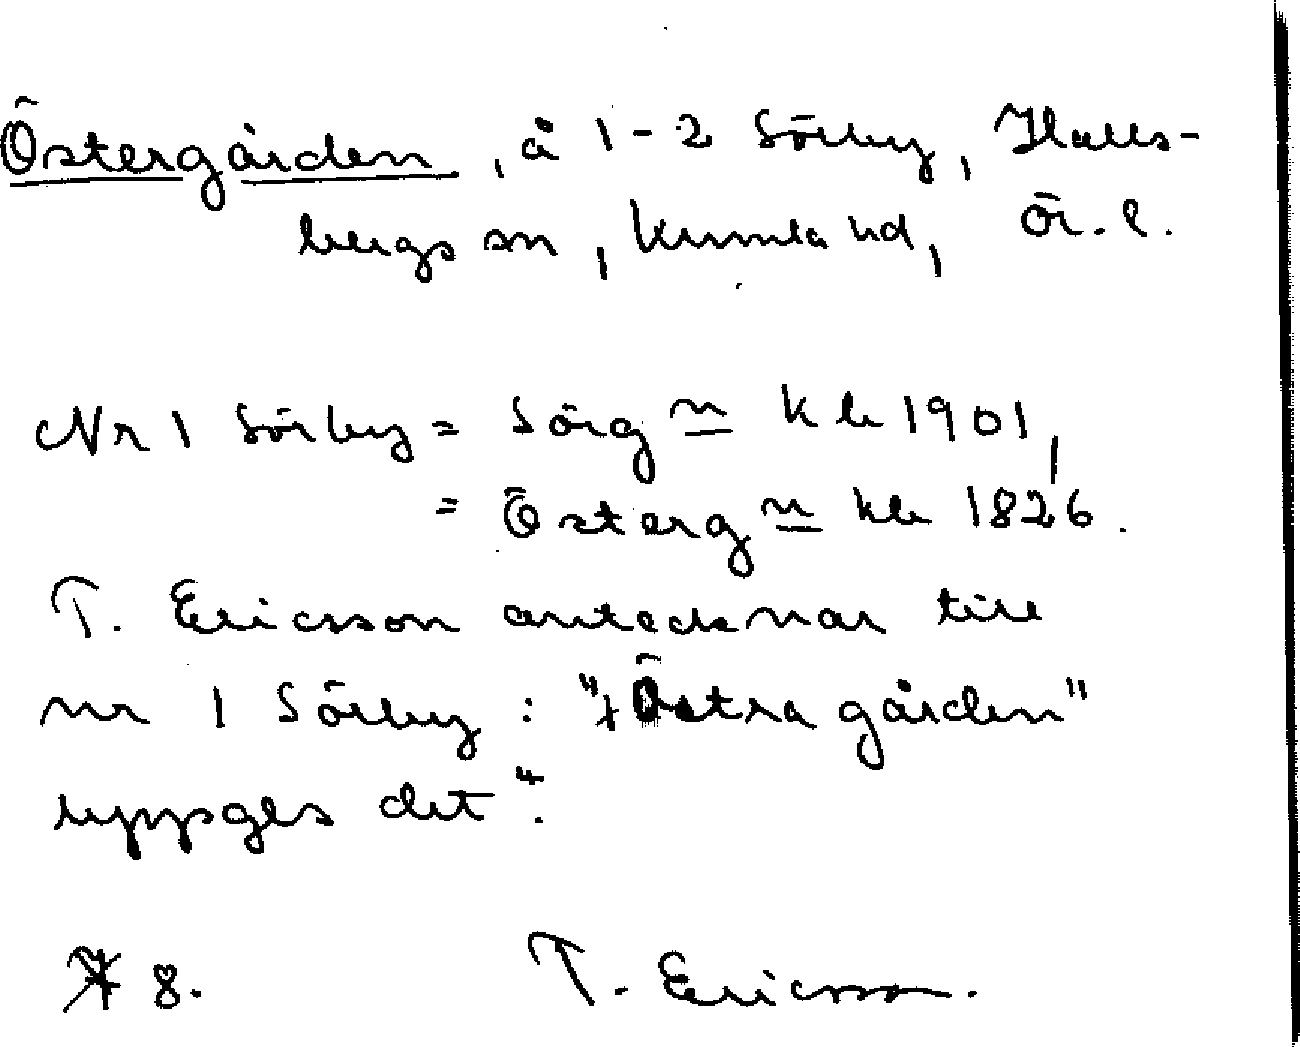 Östergården, å 1-2 Sörby, Halls-
bergs sn, Kumla hd, Ör. l.
Nr 1 Sörby = Sörg n kb 1901,
= Österg n kb 1826.
T. Ericsson antecknar till
nr 1 Sörby: "Östra gården"
uppges det".
8. T. Ericsson.